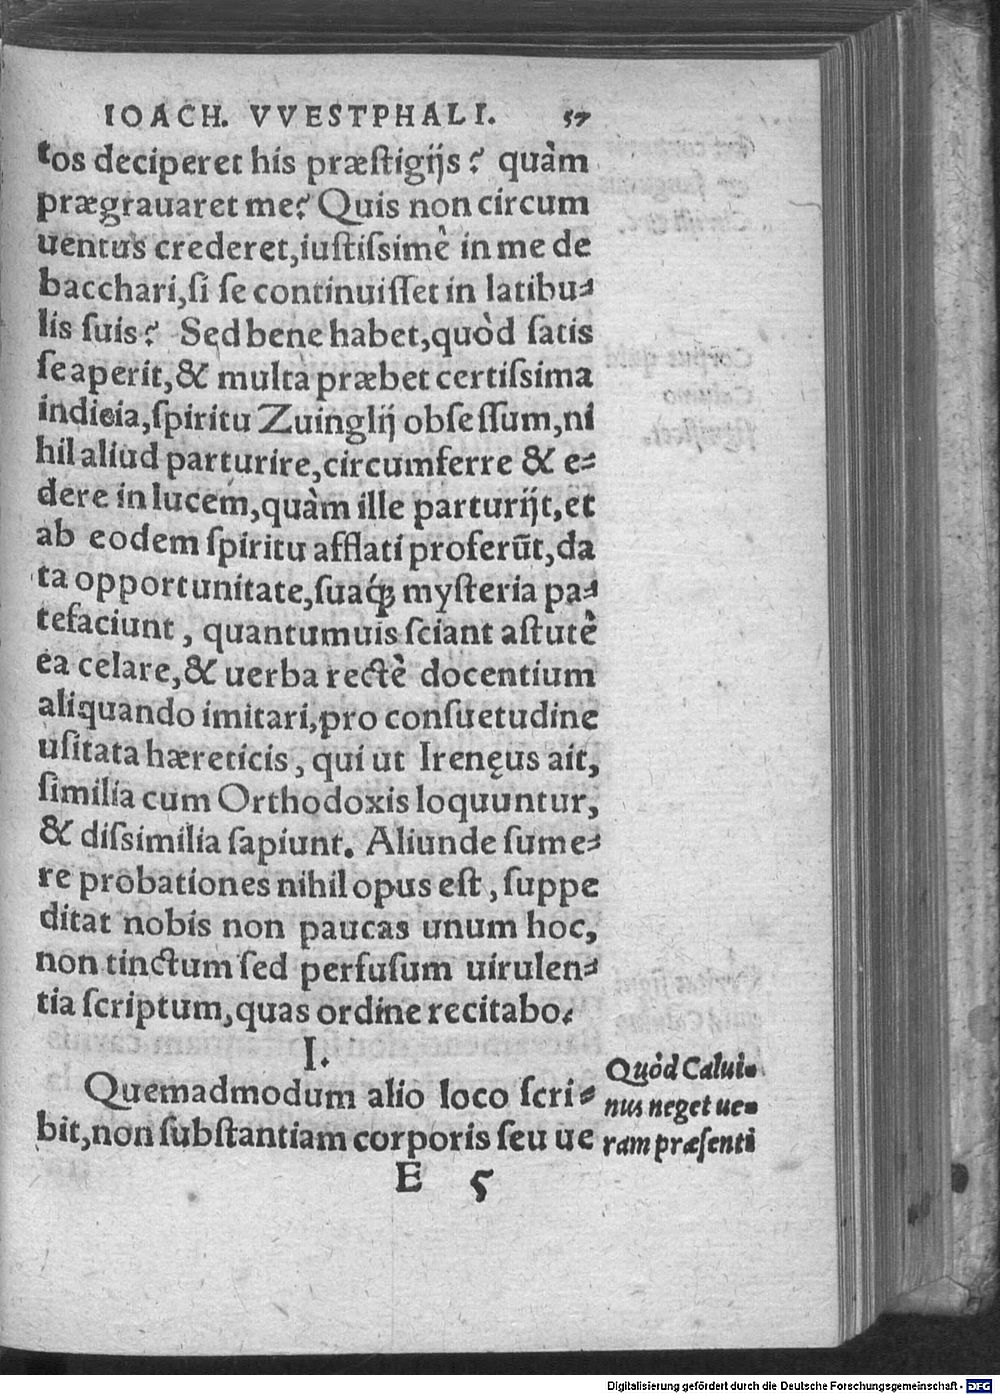 IOACH. VVESTPHALI. 57
tos deciperet his præſtigijs? quàm
prægrauaret me? Quis non circum
uentus crederet, iuſtiſsimè in me de
bacchari, ſi ſe continuiſſet in latibu-
lis ſuis? Sed bene habet, quòd ſatis
ſe aperit, & multa præbet certiſsima
indicia, ſpiritu Zuinglij obſeſſum, ni
hil aliud parturire, circumferre & e-
dere in lucem, quàm ille parturijt, et
ab eodem ſpiritu afflati proferūt, da
ta opportunitate, ſuaq́ꝫ myſteria pa-
tefaciunt, quantumuis ſciant aſtutè
ea celare, & uerba rectè docentium
aliquando imitari, pro conſuetudine
uſitata hæreticis, qui ut Irenęus ait,
ſimilia cum Orthodoxis loquuntur,
& diſsimilia ſapiunt. Aliunde ſume-
re probationes nihil opus eſt, ſuppe
ditat nobis non paucas unum hoc,
non tinctum ſed perfuſum uirulen-
tia ſcriptum, quas ordine recitabo.
I.
Quemadmodum alio loco ſcri-
bit, non ſubſtantiam corporis ſeu ue
Quòd Calui-
nus neget ue-
ram præſenti
E 5
Digitalisierung gefördert durch die Deutsche Forschungsgemeinschaft - DFG